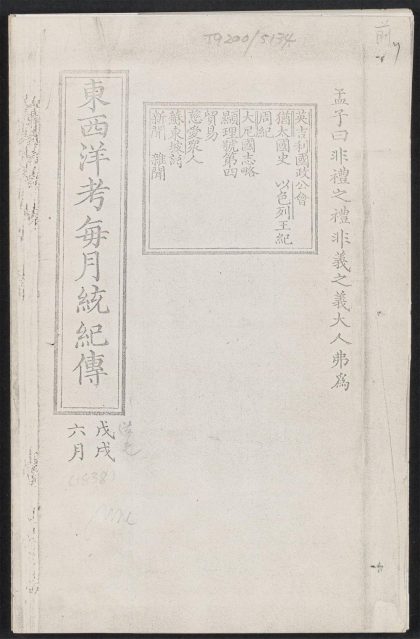 T9200/5134
前
孟子曰非禮之禮非義之義大人弗為
英吉利國政公會
猶太國史 以色列王紀
周紀
大尼國志略
顯理號第四
貿易
慈愛眾人
蘇東坡詩
新聞 雜聞
東西洋考每月統紀傳
戊戌
六月
(1838)